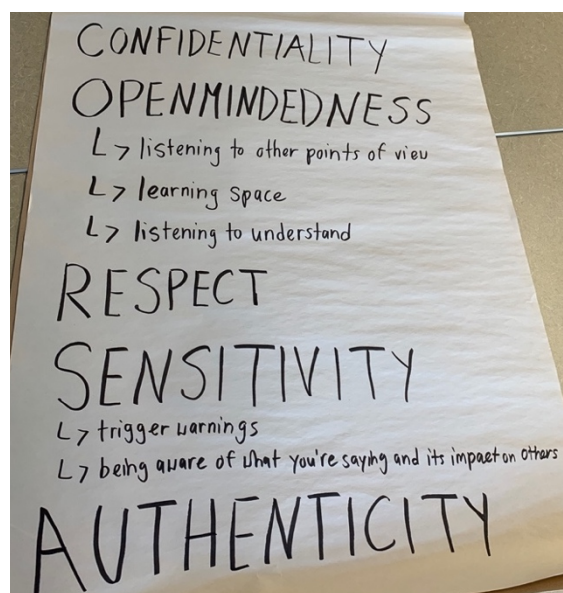 CONFIDENTIALITY
OPENMINDEDNESS
↳ listening to other points of view
↳ learning space
↳ listening to understand
RESPECT
SENSITIVITY
↳ trigger warnings
↳ being aware of what you're saying and its impact on others
AUTHENTICITY